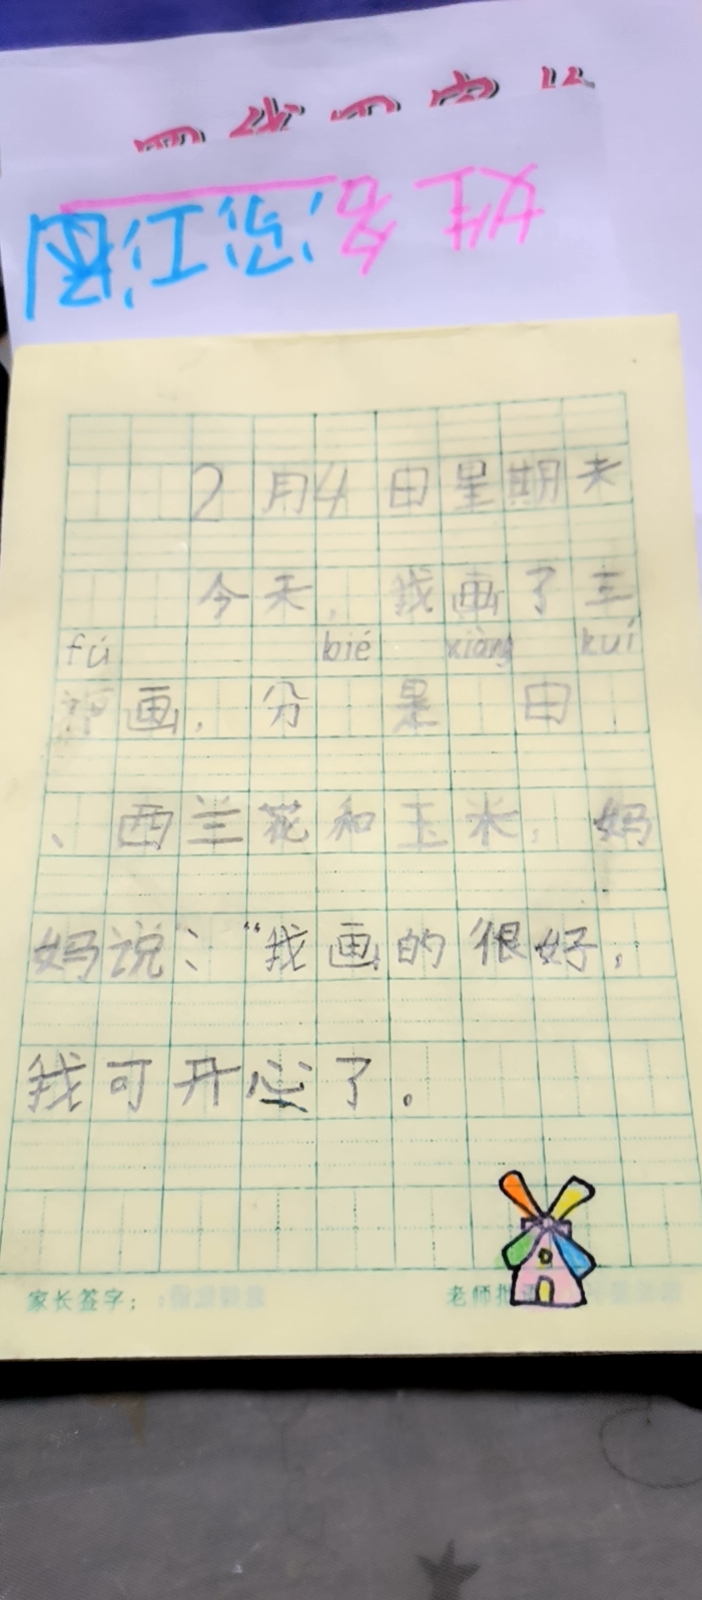 姓名
2月4日星期天
今天，我画了三
fú bié xiàng kuí
画，分 是 日
、西兰花和玉米，妈
妈说：“我画的很好，
我可开心了。
家长签字：
老师